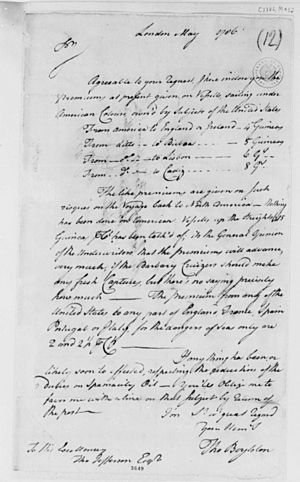 (12)
London May 1786
Sir
Agreeable to your Request, I here inclose you the
Premiums, at present given on Vessels, sailing under
American Colours own'd by Subjects of the United States
From America to England or Ireland - 4 Guineas
From ditto - to Bilboa - 5 Guineas
From - Do - to Lisbon - 6 Gs
From - Do - to Cadiz - 8 Gs
The like premiums are given on such
risques on the Voyage back to North America - Nothing
has been done on American Vessels, up the Streights 25
Guineas has been talk'd of. Its the General Opinion
of the Underwriters that the Premiums will advance,
very much, if the Barbary Cruizers should make
any fresh Captures, but there's no saying precisely
how much - The Premium from any of the
United States to any part of England France, Spain
Portugal or Italy, for the dangers of Seas only are
2 and 2½
If any thing has been or
likely soon to effected, respecting the reduction of the
Duties on Spermacity Oil - You'll Oblige me to
favor me with a line on that subject by return of
the post -
I'm Sr wt great regard
Your Hem Sr
Tho Boylston
To His Excellency
Tho Jefferson Esqr
3649